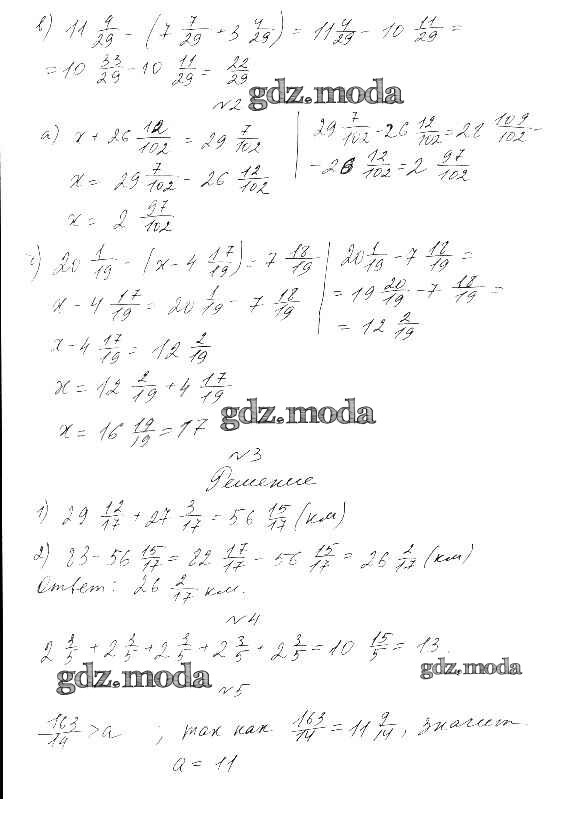 в) 11 4/29 - (7 7/29 + 3 4/29) = 11 4/29 - 10 11/29 =
= 10 33/29 - 10 11/29 = 22/29
№2 gdz.moda
а) x + 26 12/102 = 29 7/102 | 29 7/102 - 26 12/102 = 28 109/102 -
x = 29 7/102 - 26 12/102 | - 26 12/102 = 2 97/102
x = 2 97/102
20 1/19 - (x - 4 17/19) = 7 18/19 | 20 1/19 - 7 18/19 =
x - 4 17/19 = 20 1/19 - 7 18/19 | = 19 20/19 - 7 18/19 =
x - 4 17/19 = 12 2/19 | = 12 2/19
x = 12 2/19 + 4 17/19
x = 16 19/19 = 17 gdz.moda
№3
Решение
1) 29 12/17 + 27 3/17 = 56 15/17 (км)
2) 83 - 56 15/17 = 82 17/17 - 56 15/17 = 26 2/17 (км)
Ответ: 26 2/17 км.
№4
2 3/5 + 2 3/5 + 2 3/5 + 2 3/5 + 2 3/5 = 10 15/5 = 13.
gdz.moda gdz.moda
№5
163/14 > a ; так как 163/14 = 11 9/14, значит
a = 11